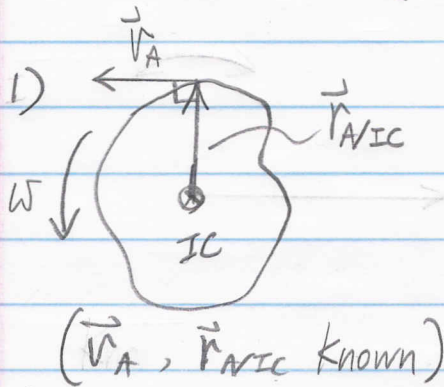 v⃗_A
1)
r⃗_A/IC
ω
IC
(v⃗_A, r⃗_A/IC known)